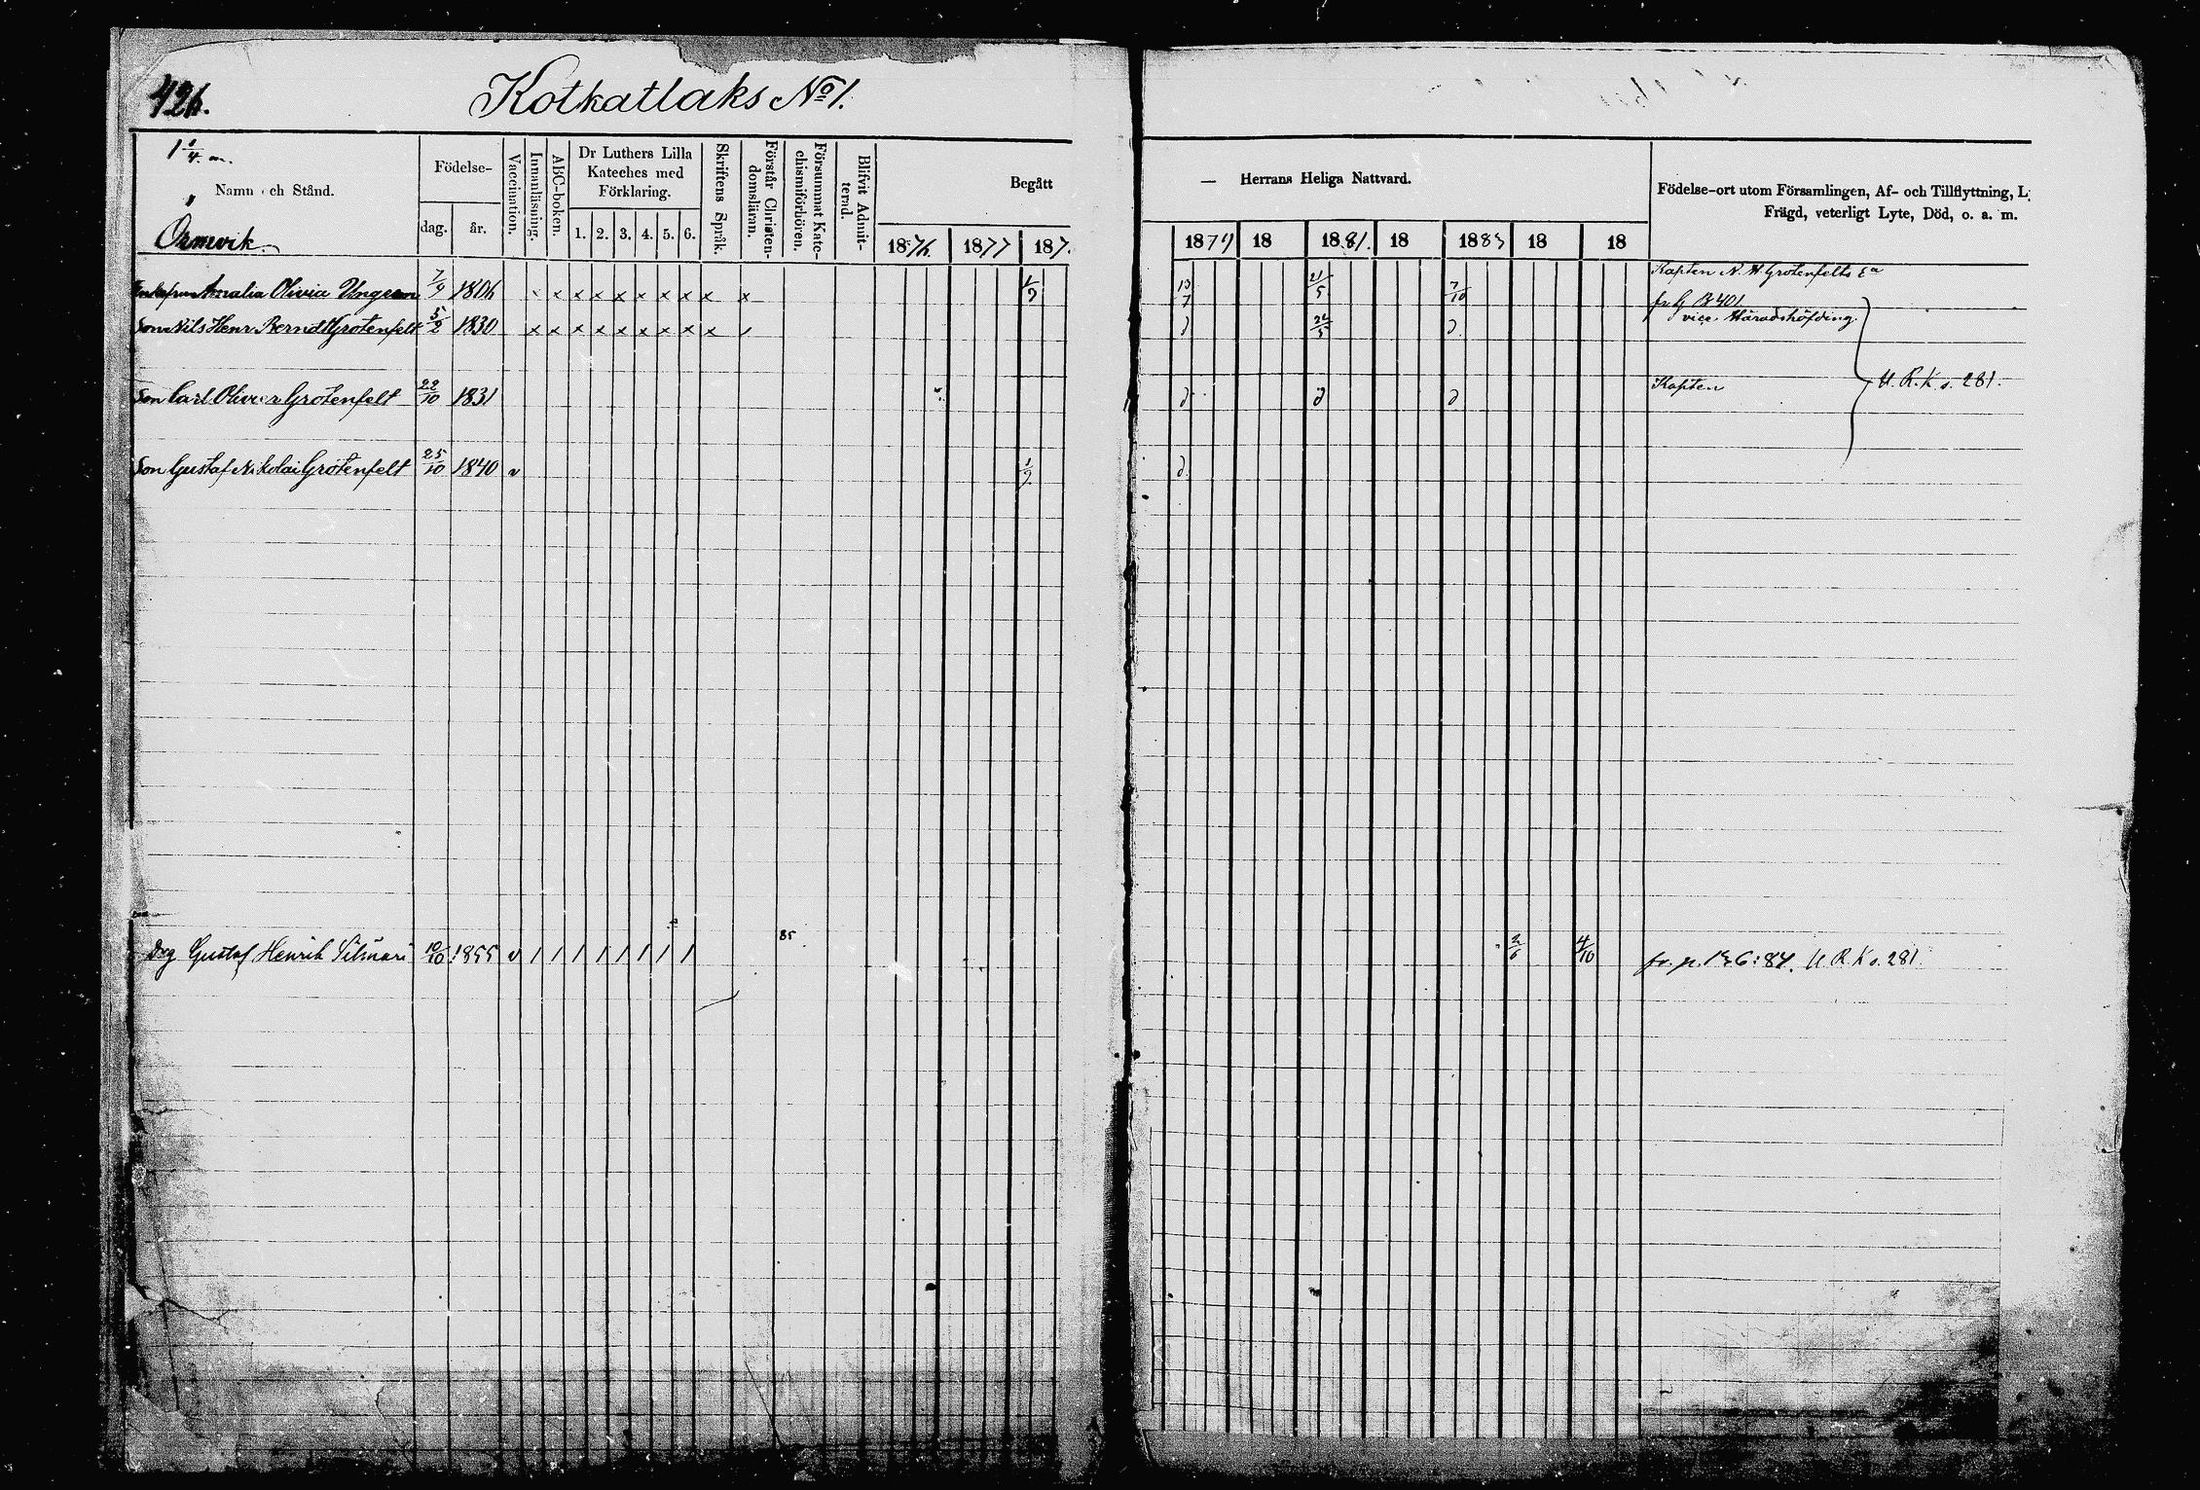 426.
Kotkatlaks No 1.
1 1/4 m.
Namn och Stånd.
Ormvik.
Födelse-
dag. år.
Vaccination.
Innanläsning.
ABC-boken.
Dr Luthers Lilla
Kateches med
Förklaring.
1. 2. 3. 4. 5. 6.
Skriftens Språk.
Förstår Christen-
domsläran.
Försummat Kate-
chismiförhören.
Blifvit Admit-
terad.
Begått
1876. 1877 187.
— Herrans Heliga Nattvard.
1879 18 1881. 18 1883 18 18
Födelse-ort utom Församlingen, Af- och Tillflyttning, L
Frägd, veterligt Lyte, Död, o. a. m.
Enkefru Amalia Olivia Ungern 7/9 1806 x x x x x x x x x x 1/9 13/7 21/5 7/10 Kapten N. H. Grotenfelts Ea
fr G B 401
Son Nils Henr. Berndt Grotenfelt 5/2 1830 x x x x x x x x x / d 22/5 d. vice Häradshöfding.
Son Carl Olivier Grotenfelt 22/10 1831 d d d Kapten U. R. K s. 281.
Son Gustaf Nikolai Grotenfelt 25/10 1840 v 1/9 d.
85
Drg Gustaf Henrik Silmari 10/10 1855 v / / / / / / / / 2/6 4/10 fr. p. 136: 84. U. R. K s. 281